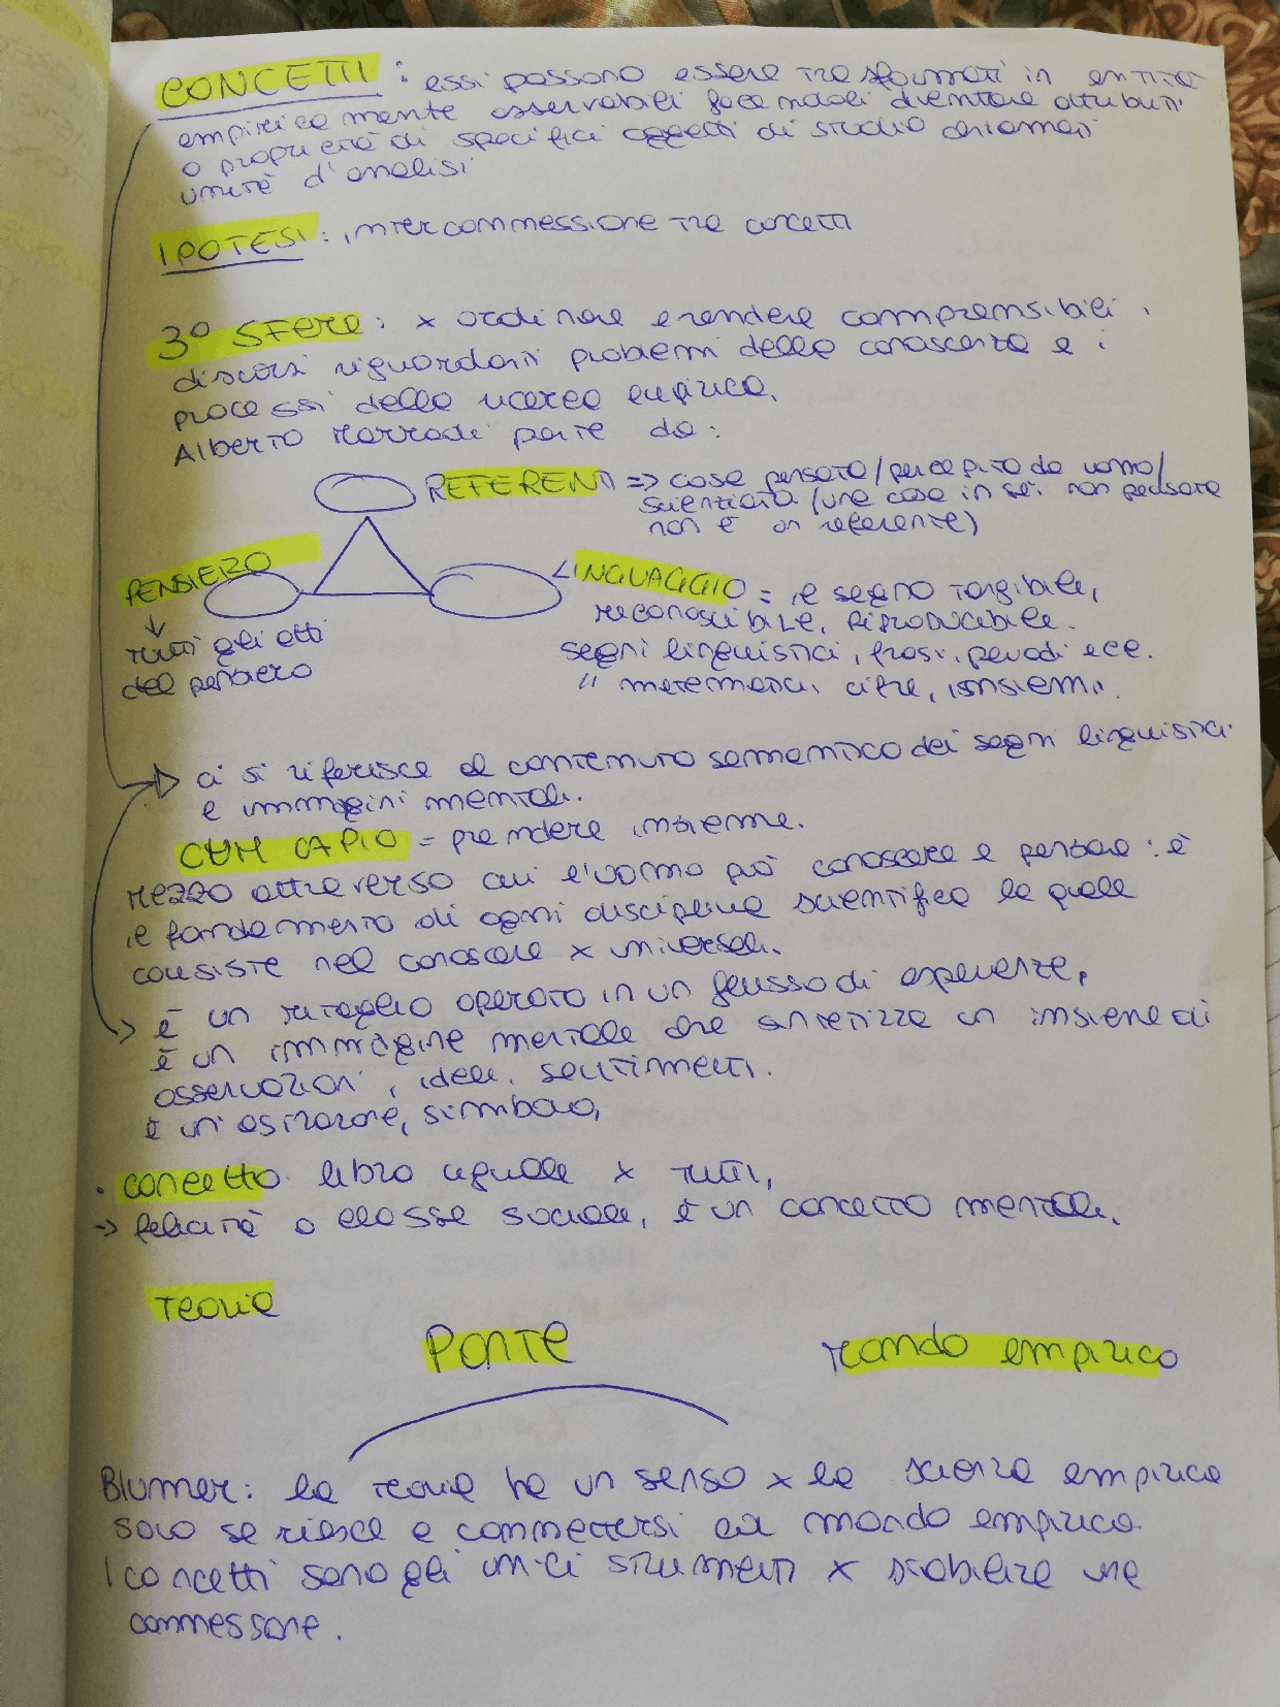 CONCETTI : essi possono essere trasformati in entità
empiricamente osservabili facendoli diventare attributi
o proprietà di specifici oggetti di studio chiamati
unità d'analisi
IPOTESI : interconnessione tra concetti
3° SFERE : x ordinare e rendere comprensibili i
discorsi riguardanti problemi della conoscenza e i
processi della ricerca empirica.
Alberto Marradi parte da :
REFERENTI => cose pensate/percepite da uomo/
scienziato (una cosa in sé non pensata
non è un referente)
PENSIERO
↓
tutti gli atti
del pensiero
LINGUAGGIO = è segno tangibile,
riconoscibile, riproducibile.
segni linguistici, frasi, periodi ecc.
" matematici, cifre, insiemi.
ci si riferisce al contenuto semantico dei segni linguistici
e immagini mentali.
CUM CAPIO = prendere insieme.
mezzo attraverso cui l'uomo può conoscere e pensare : è
il fondamento di ogni disciplina scientifica la quale
consiste nel conoscere x universali.
è un ritaglio operato in un flusso di esperienze,
è un immagine mentale che sintetizza un insieme di
osservazioni, idee, sentimenti.
è un'astrazione, simbolo,
• concetto libro uguale x tutti,
→ felicità o classe sociale, è un concetto mentale.
Teoria
Ponte
Mondo empirico
Blumer : la teoria ha un senso x la scienza empirica
solo se riesce a connettersi col mondo empirico.
I concetti sono gli unici strumenti x stabilire una
connessione.